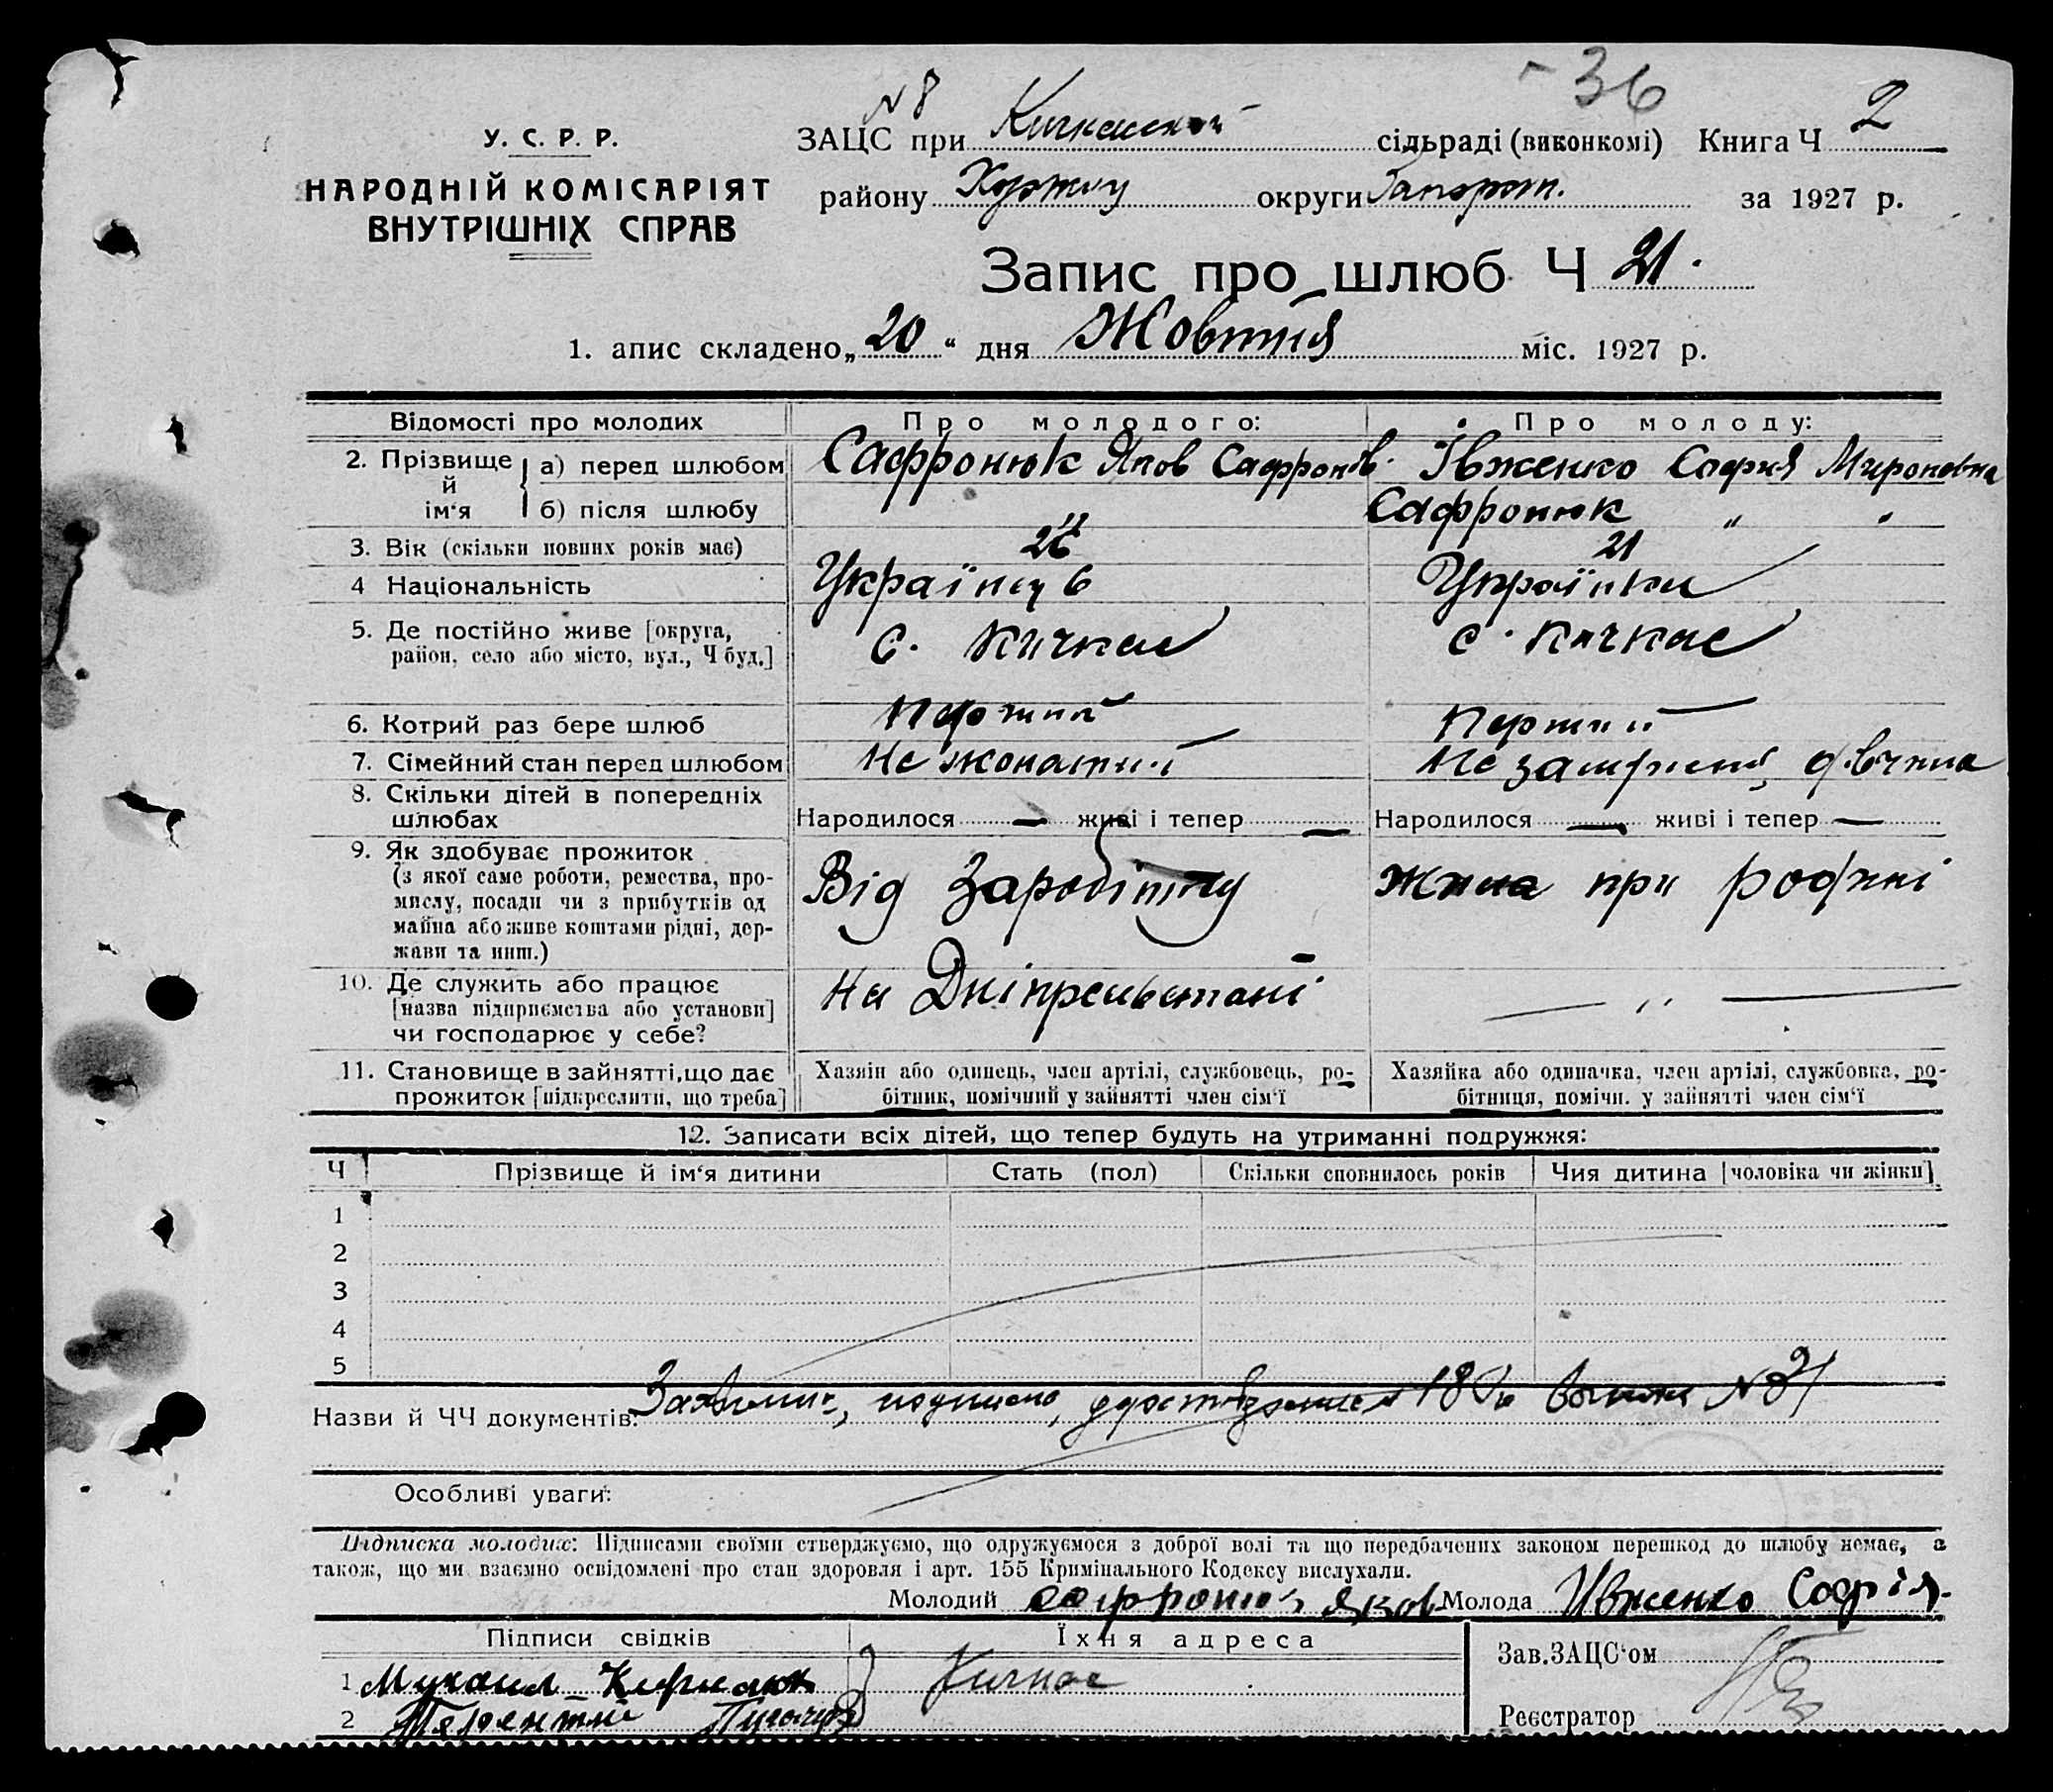 - 36
N 8
У. С. Р. Р.
ЗАЦС при Кичкаській сільраді (виконкомі) Книга Ч 2
НАРОДНІЙ КОМІСАРІЯТ
ВНУТРІШНІХ СПРАВ
району округи Запорож. за 1927 р.
Запис про шлюб Ч 21.
1. апис складено „20“ дня Жовтня міс. 1927 р.
Відомості про молодих Про молодого: Про молоду:
2. Прізвище й ім‘я а) перед шлюбом Сафронюк Яков Сафронов. Івженко София Мироновна
б) після шлюбу Сафронюк " "
3. Вік (скільки повних років має) 21
4 Національність Українець Українка
5. Де постійно живе [округа, район, село або місто, вул., Ч буд.] с. Кичкас с. Кичкас
6. Котрий раз бере шлюб Перший Перший
7. Сімейний стан перед шлюбом Не жонатий Не дівчина
8. Скільки дітей в попередніх шлюбах Народилося — живі і тепер — Народилося — живі і тепер —
9. Як здобуває прожиток
(з якої саме роботи, ремества, про-
мислу, посади чи з прибутків од
майна або живе коштами рідні, дер-
жави та инш.)
Від Заробітку Жила при родині
10. Де служить або працює
[назва підприємства або установи]
чи господарює у себе?
На — " —
11. Становище в зайнятті, що дає
прожиток [підкреслити, що треба]
Хазяін або одинець, член артілі, службовець, ро-
бітник, помічний у зайнятті член сім‘ї
Хазяйка або одиначка, член артілі, службовка, ро-
бітниця, помічн. у зайнятті член сім‘ї
12. Записати всіх дітей, що тепер будуть на утриманні подружжя:
Ч Прізвище й ім‘я дитини Стать (пол) Скільки сповнилось років Чия дитина [чоловіка чи жінки]
1
2
3
4
5
Назви й ЧЧ документів:
Особливі уваги:
Підписка молодих: Підписами своїми стверджуємо, що одружуємося з доброї волі та що передбачених законом перешкод до шлюбу немає, а
також, що ми взаємно освідомлені про стан здоровля і арт. 155 Кримінального Кодексу вислухали.
Молодий Сафронюк Яков Молода Ивженко Софія.
Підписи свідків Їхня адреса Зав.ЗАЦС‘ом
1 Кичкас
2 Терентій
Реєстратор